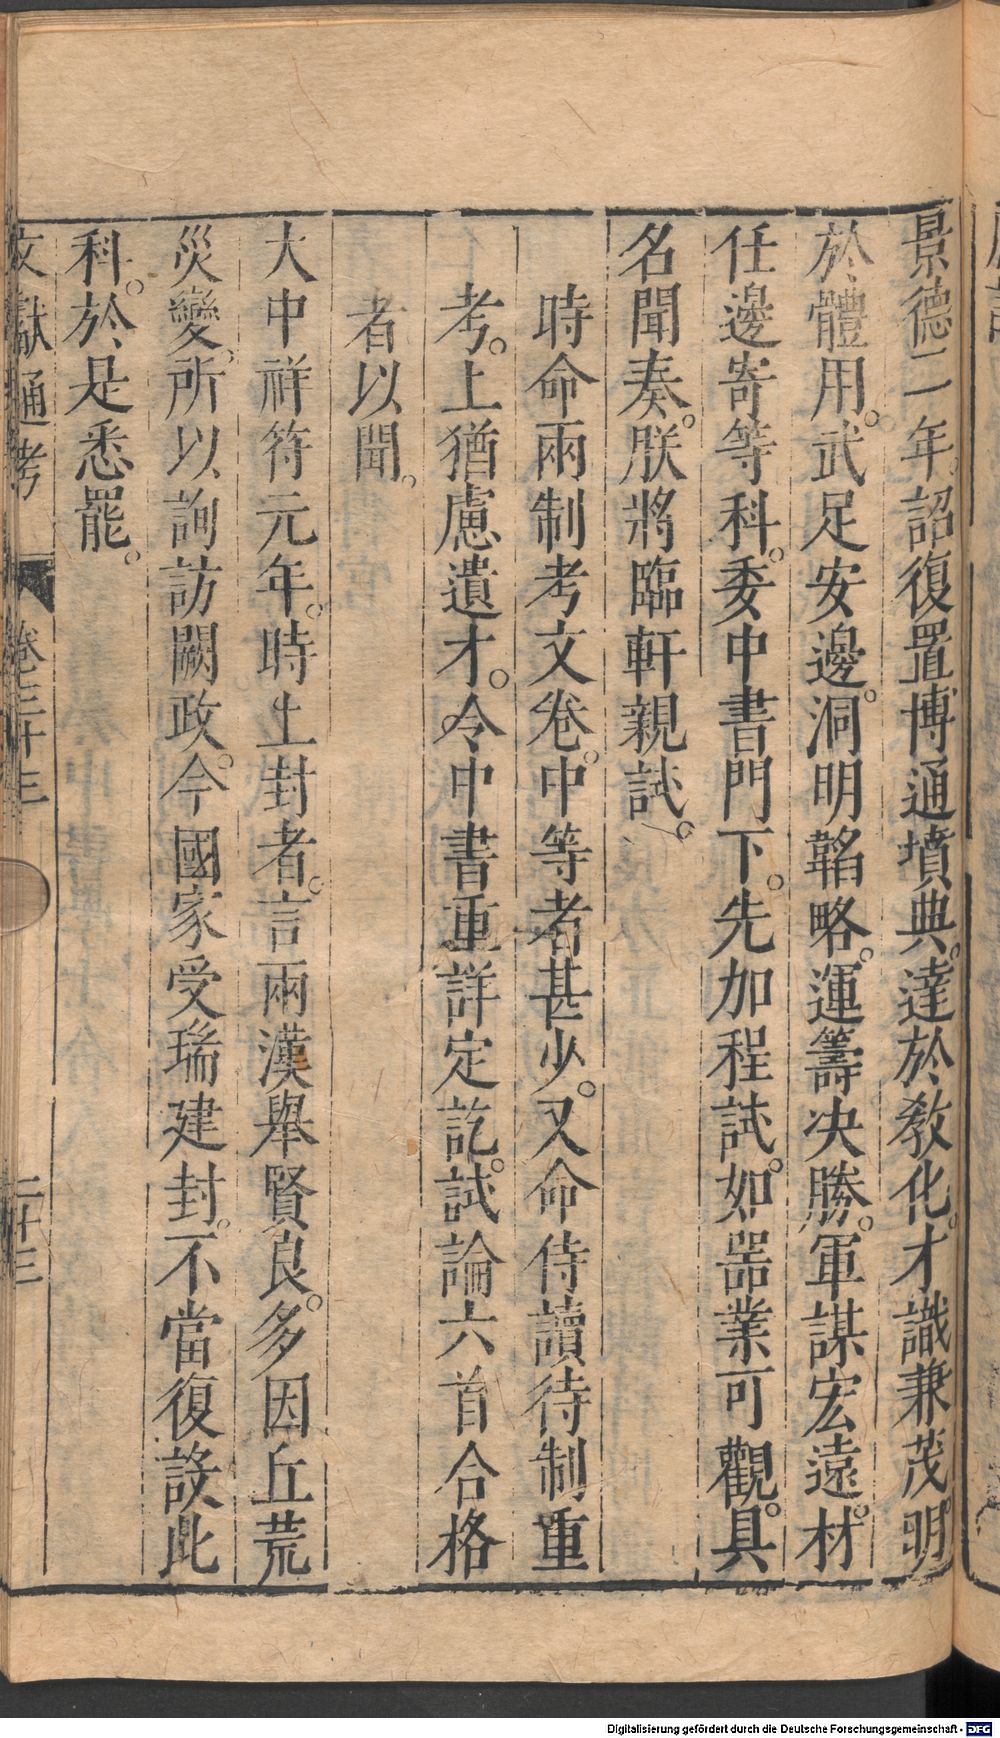 景德二年詔復置博通墳典。達於敎化。才識兼茂。明
於體用。武足安邊。洞明韜略。運籌决勝。軍謀宏遠。材
任邊寄等科。委中書門下。先加程試。如器業可觀。具
名聞奏。朕將臨軒親試。
時命兩制考文卷。中等者甚少。又命侍讀待制重
考。上猶慮遺才。令中書重詳定訖。試論六首合格
者以聞。
大中祥符元年。時上封者。言兩漢舉賢良。多因丘荒
災變。所以詢訪闕政。今國家受瑞建封。不當復設此
科。於是悉罷。
文獻通考 卷三十三 二十三
Digitalisierung gefördert durch die Deutsche Forschungsgemeinschaft - DFG